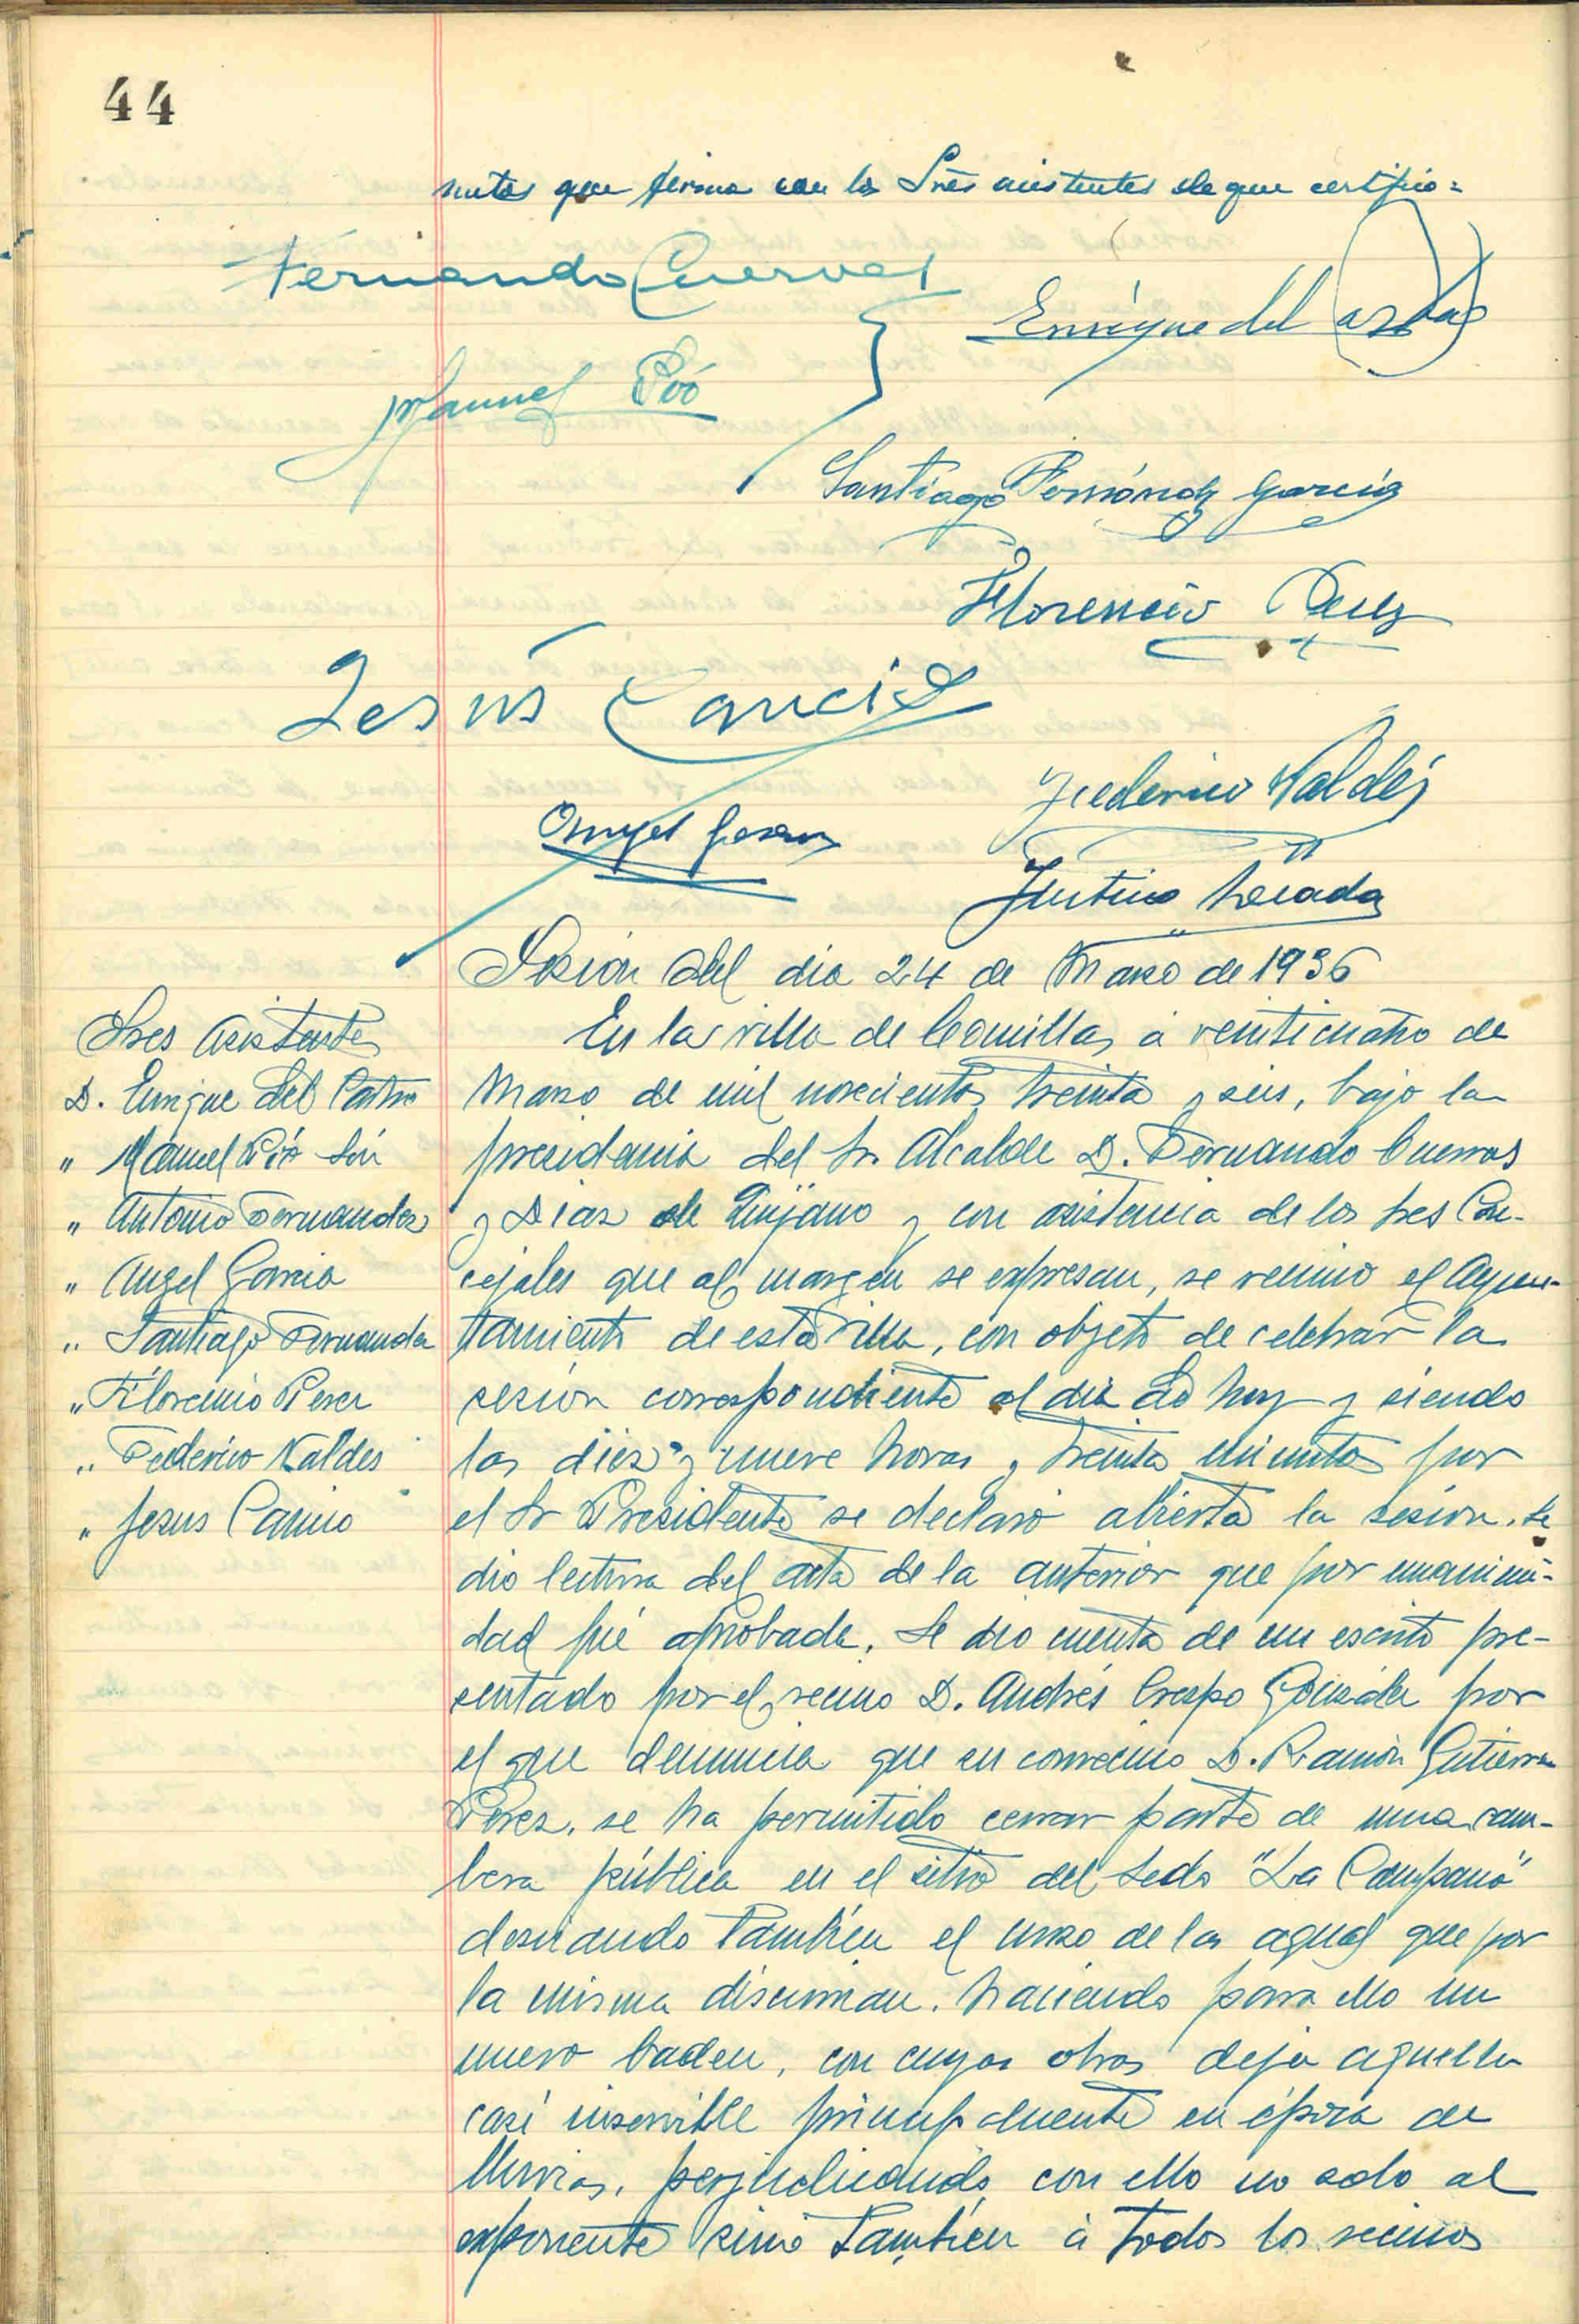 44
nutos que firma con los Sres asistentes de que certifico=
Fernando Cuevas
Enrique del Castro
Manuel Póo
Santiago Fernández García
Florencio Perez
Jesús Cancio
Federico Valdés
Angel García
Justino Lozada
Sesión del dia 24 de Marzo de 1936
Sres Asistentes
D. Enrique del Castro
" Manuel Póo
" Antonio Fernandez
" Angel Garcia
" Santiago Fernandez
" Florencio Perez
" Federico Valdes
" Jesus Cancio
En la villa de Comillas, a veinticuatro de
Marzo de mil novecientos treinta y seis, bajo la
presidencia del Sr. Alcalde D. Fernando Cuevas
y Diaz de Quijano y con asistencia de los Sres Con-
cejales que al margen se expresan, se reunio el Ayun-
tamiento de esta villa, con objeto de celebrar la
sesion correspondiente al dia de hoy y siendo
las diez y nueve horas y treinta minutos por
el Sr Presidente se declaró abierta la sesion. Se
dio lectura del acta de la anterior que por unanimi-
dad fué aprobada. Se dio cuenta de un escrito pre-
sentado por el vecino D. Andrés Crespo González por
el que denuncia que su convecino D. Ramón Gutierrez
Perez, se ha permitido cerrar parte de una cam-
bera pública en el sitio del Sedo "La Campana"
desviando también el curso de las aguas que por
la misma discurrian, haciendo para ello un
nuevo baden, con cuyas obras deja aquella
casi inservible principalmente en época de
lluvias, perjudicando con ello no solo al
exponente sinó también á todos los vecinos